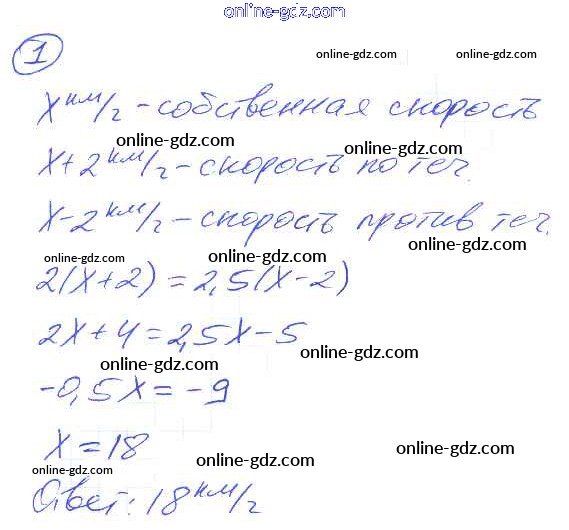 online-gdz.com
1 online-gdz.com online-gdz.com
x км/г - собственная скорость
online-gdz.com online-gdz.com
x+2 км/г - скорость по теч.
x-2 км/г - скорость против теч.
online-gdz.com online-gdz.com
2(x+2) = 2,5(x-2)
2x+4=2,5x-5
online-gdz.com online-gdz.com
-0,5x = -9
x = 18
online-gdz.com online-gdz.com
online-gdz.com
Ответ: 18 км/г
online-gdz.com